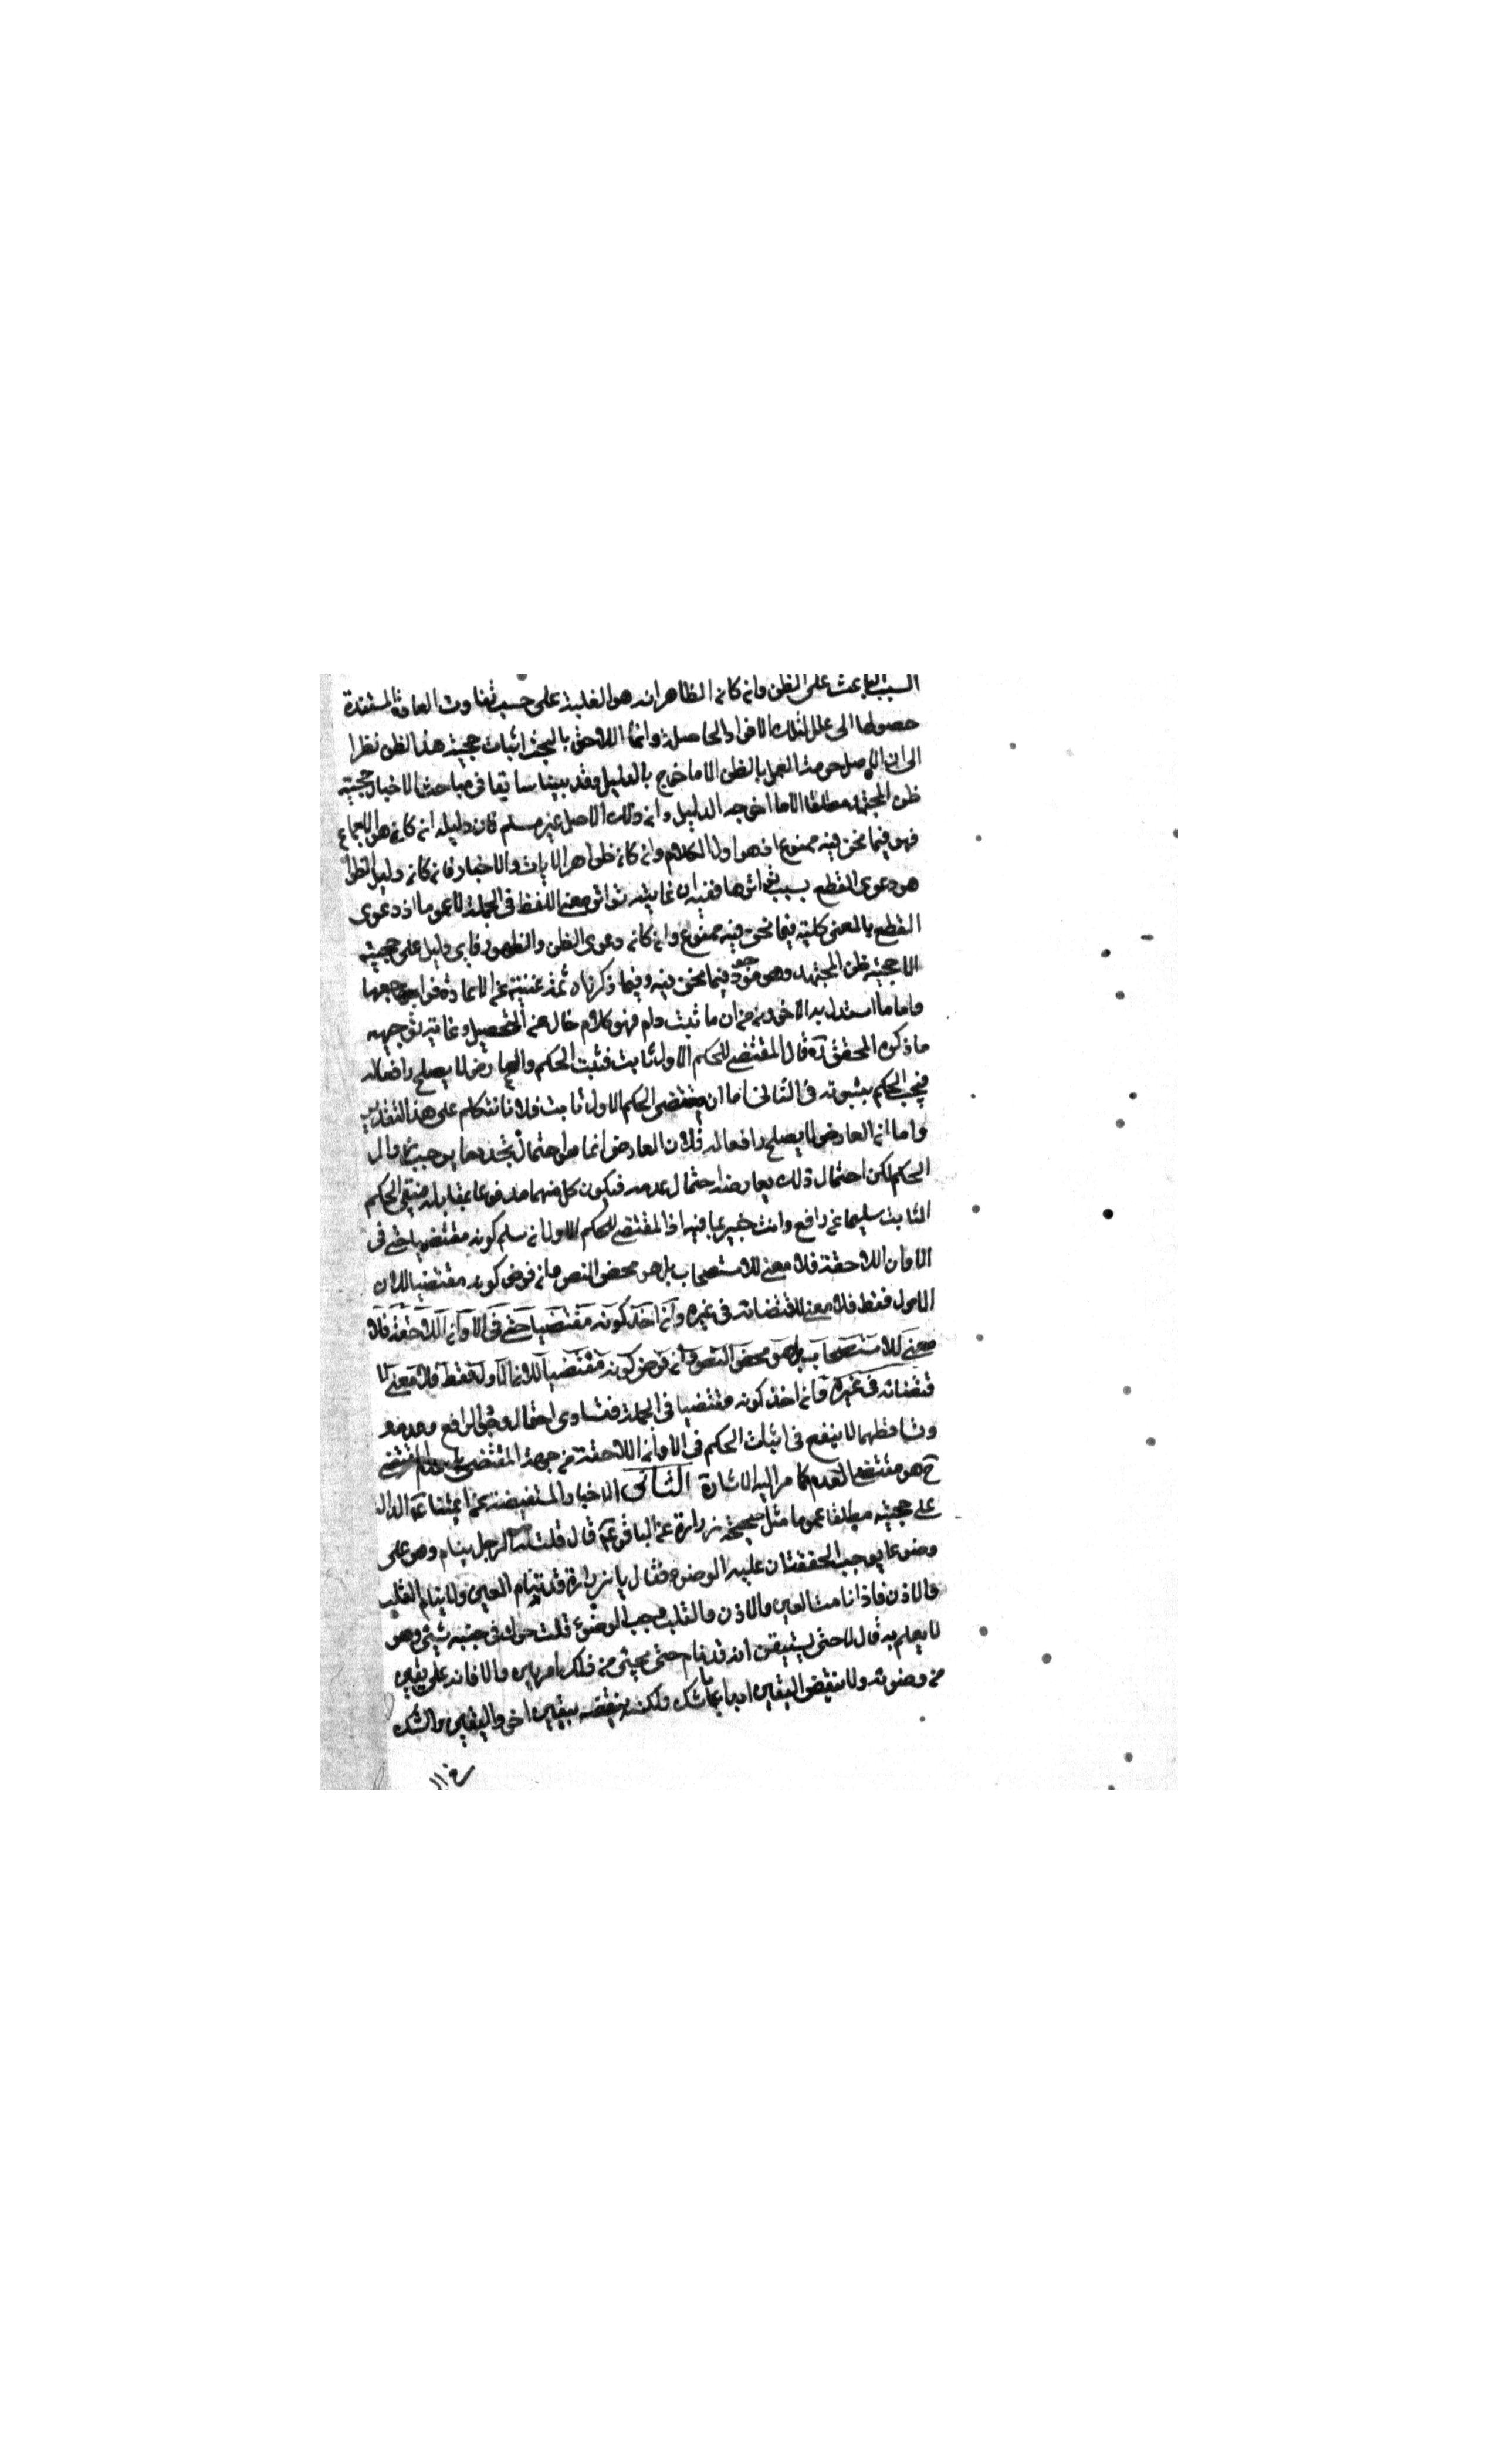 السبب الباعث على الظن وان كان الظاهر انه هو الغلبة على حسب تفاوت العادة المستندة
حصولها الى علل لتلك الافراد الحاصلة وانما اللاحق بالبحث اثبات حجية هذا الظن نظرا
الى ان الاصل حرمة العمل بالظن الا ما خرج بالدليل وقد بينا سابقا فى مباحث الاخبار حجية
ظن المجتهد مطلقا الا ما اخرجه الدليل وان ذلك الاصل غير مسلم فان دليله ان كان هو الاجماع
فهو فيما نحن فيه ممنوع اذ هو اول الكلام وان كان ظواهر الايات والاخبار فان كان دليل الظواهر
هو دعوى القطع بسبب تواترها ففيه ان غايته تواتر معنى اللفظ فى الجملة لا عموما اذ دعوى
القطع بالمعنى كلية فيما نحن فيه ممنوع وان كان دعوى الظن والظهور فاى دليل على حجيته
الا حجية ظن المجتهد وهو موجود فيما نحن فيه وفيما ذكرناه ثمة غنية عن الاعادة فراجعها
واما ما استدل به الاخرون من ان ما ثبت دام فهو كلام خال عن التحصيل وغاية توجيهه
ما ذكره المحقق ره قال المقتضى للحكم الاول ثابت فثبت الحكم والعارض لا يصلح رافعا له
فيجب الحكم بثبوته فى الثانى اما ان مقتضى الحكم الاول ثابت فلانا نتكلم على هذا التقدير
واما ان العارض لا يصلح رافعا له فلان العارض انما هو احتمال تجدد ما يوجب زوال
الحكم لكن احتمال ذلك يعارضه احتمال عدمه فيكون كل منهما مدفوعا بمقابله فيبقى الحكم
الثابت سليما عن رافع وانت خبير بما فيه اذ المقتضى للحكم الاول ان سلم كونه مقتضيا حتى فى
الاوان اللاحقة فلا معنى للاستصحاب بل هو محض النص وان فرض كونه مقتضيا للان
الاول فقط فلا معنى لاقتضائه فى غيره وان اخذ كونه مقتضيا حتى فى الاوان اللاحقة فلا
معنى للاستصحاب بل هو محض النص وان فرض كونه مقتضيا للان الاول فقط فلا معنى لا
قتضائه فى غيره فان اخذ كونه مقتضيا فى الجملة فتساوى احتمال وجود الرافع وعدمه و
وتساقطهما لا ينفع فى اثبات الحكم فى الاوان اللاحقة من جهة المقتضى بل عدم المقتضى
ح هو مقتضى العدم كما مر اليه الاشارة الثانى الاخبار المستفيضة عن ائمتنا ع الدالة
على حجيته مطلقا عموما مثل صحيحة زرارة عن الباقر ع قال قلت له الرجل ينام وهو على
وضوء ايوجب الخفقتان عليه الوضوء فقال يا زرارة قد تنام العين ولا ينام القلب
والاذن فاذا نامت العين والاذن والقلب وجب الوضوء قلت حرك فى جنبه شئ وهو
لا يعلم به قال لا حتى يستيقن انه قد نام حتى يجئ من ذلك امر بين والا فانه على يقين
من وضوئه ولا ينقض اليقين ابدا بالشك ولكن ينقضه بيقين اخر واليقين والشك